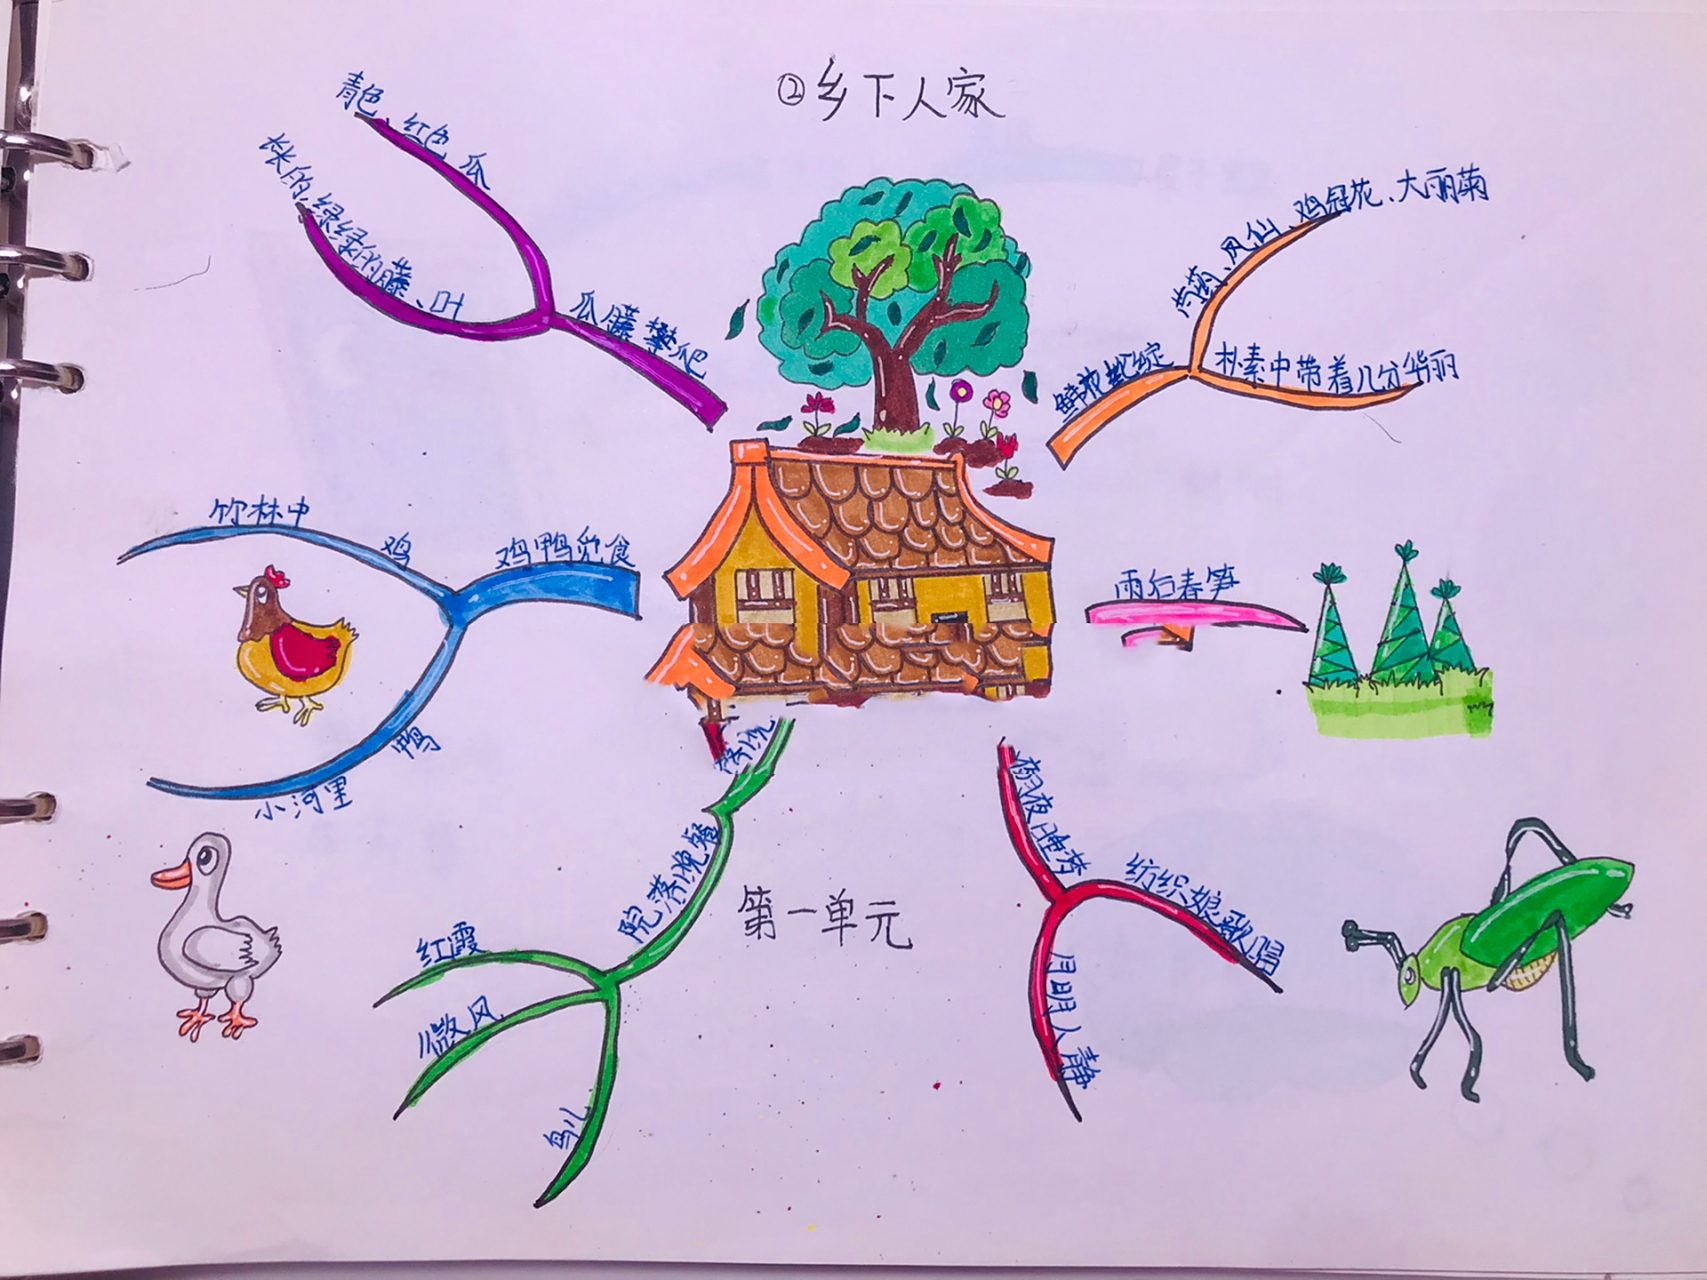 ②乡下人家
青色、红色 瓜
长长的,绿绿的藤、叶
瓜藤攀爬
芍药、凤仙、鸡冠花、大丽菊
鲜花轮绽
朴素中带着几分华丽
竹林中
鸡
鸡鸭觅食
鸭
小河里
雨后春笋
院落晚餐
红霞
微风
鸟儿
第一单元
夜睡梦
纺织娘歌唱
月明人静